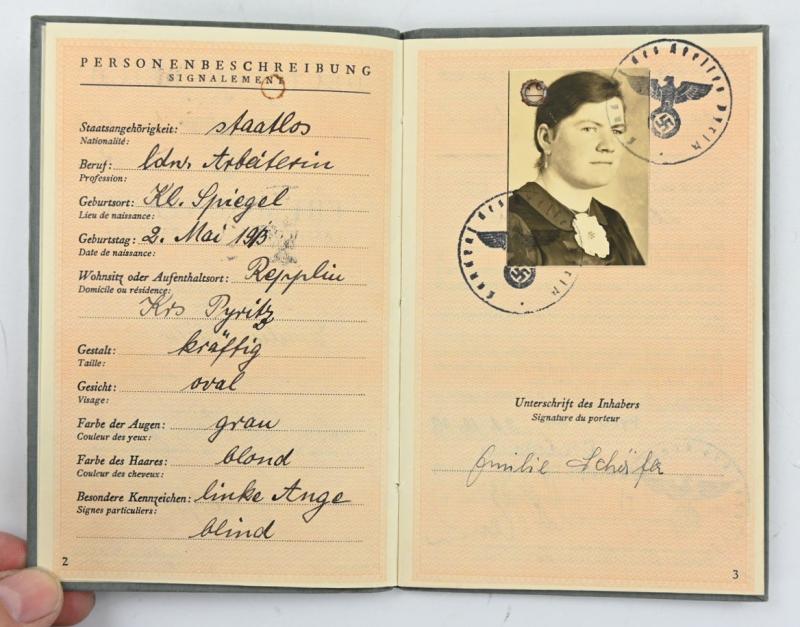 PERSONENBESCHREIBUNG
SIGNALEMENT
Staatsangehörigkeit: staatlos
Nationalité:
Beruf: ldw. Arbeiterin
Profession:
Geburtsort: Kl. Spiegel
Lieu de naissance:
Geburtstag: 2. Mai
Date de naissance:
Wohnsitz oder Aufenthaltsort: Repplin
Domicile ou résidence:
Krs Pyritz
Gestalt: kräftig
Taille:
Gesicht: oval
Visage:
Farbe der Augen: grau
Couleur des yeux:
Farbe des Haares: blond
Couleur des cheveux:
Besondere Kennzeichen: linke Auge
Signes particuliers:
blind
2
Unterschrift des Inhabers
Signature du porteur
Emilie Schäfer
3